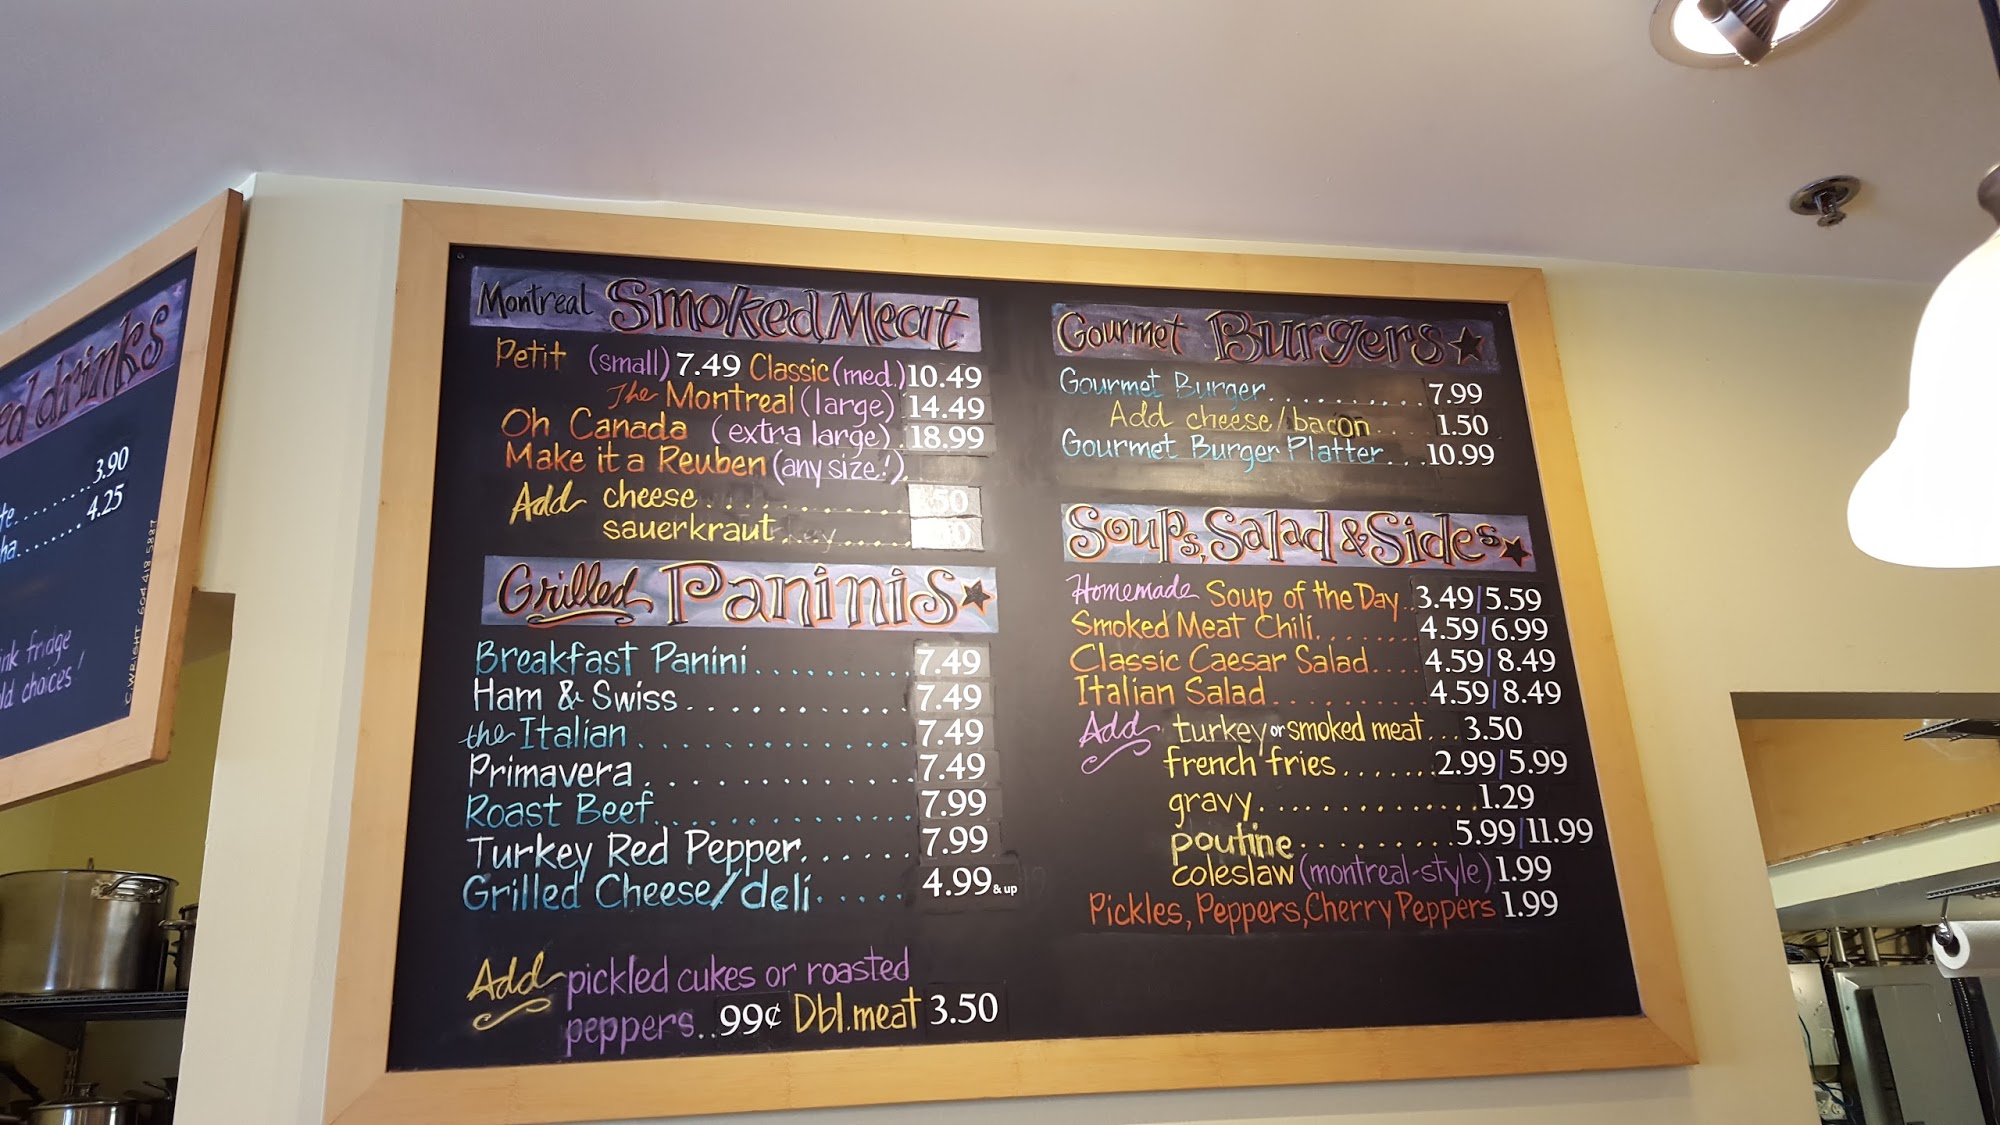 ed drinks
3.90
4.25
ink fridge
old choices!
C. WRIGHT 604 418 5887
Montreal Smoked Meat
Petit (small) 7.49 Classic (med.) 10.49
The Montreal (large) 14.49
Oh Canada (extra large). 18.99
Make it a Reuben (any size!).
Add cheese.............. 50
sauerkraut..........
Grilled Paninis
Breakfast Panini.......... 7.49
Ham & Swiss............ 7.49
the Italian.............. 7.49
Primavera.............. 7.49
Roast Beef.............. 7.99
Turkey Red Pepper...... 7.99
Grilled Cheese/deli..... 4.99 & up
Add pickled cukes or roasted
peppers.. 99¢ Dbl. meat 3.50
Gourmet Burgers
Gourmet Burger........... 7.99
Add cheese/bacon.... 1.50
Gourmet Burger Platter... 10.99
Soups, Salad & Sides
Homemade Soup of the Day.. 3.49/5.59
Smoked Meat Chili........ 4.59/6.99
Classic Caesar Salad.... 4.59/8.49
Italian Salad............ 4.59/8.49
Add turkey or smoked meat... 3.50
french fries....... 2.99/5.99
gravy.............. 1.29
poutine.......... 5.99/11.99
coleslaw (montreal-style) 1.99
Pickles, Peppers, Cherry Peppers 1.99